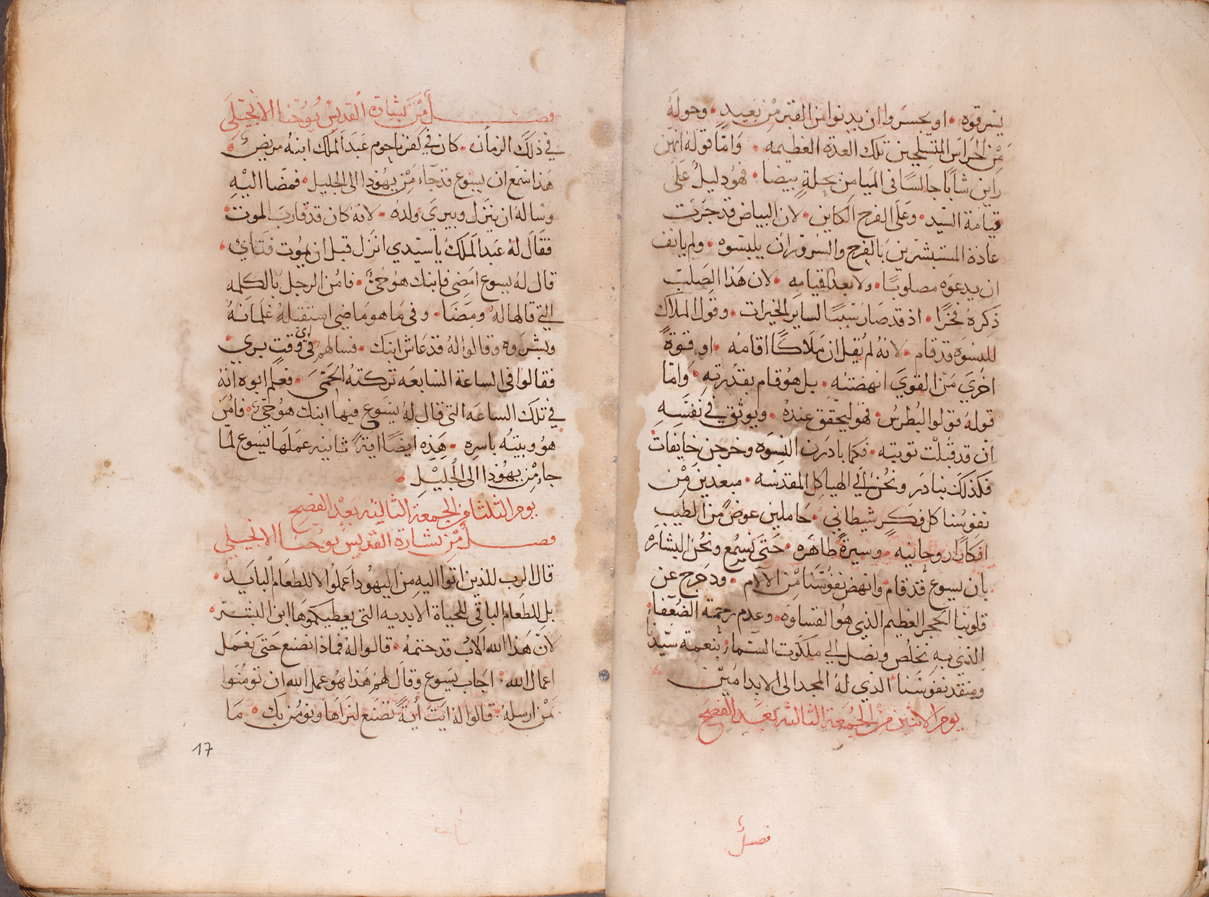 يسرقوه • او يجسروا ان يدنوا من القبر من بعيد • وحوله
من الحراس المتسلحين تلك العدة العظيمه • واما قوله انهن
راين شابًا جالسًا في الميامن بحلةٍ بيضا • فهو دليل على
قيامة السيد • وعلى الفرح الكاين • لان البياض قد جرت
عادة المستبشرين بالفرح والسرور ان يلبسوه • ولم يانف
ان يدعوه مصلوبًا • ولا بعد القيامه • لان هذا الصليب
ذكره فخرًا • اذ قد صار سببًا لساير الخيرات • وقول الملاك
للنسوه قد قام • لانه لم يقل ان ملاكًا اقامه • او قوةً
اخرى من القوي انهضته • بل هو قام بقدرته • واما
قوله قولوا لبطرس فهو ليحقق عنده • ويوثق في نفسه
ان قد قبلت توبته • فكما بادرن النسوه وخرجن خايفات
فكذلك نبادر ونحن الي الهياكل المقدسه • مبعدين من
نفوسنا كل فكر شيطاني • حاملين عوض من الطيب
افكارًا روحانيه • وسيرة طاهره • حتى نسمع ونحن البشاره
بان يسوع قد قام • وانهض نفوسنا من الالام • ودحرج عن
قلوبنا الحجر العظيم الذي هو القساوه • وعدم رحمة الضعفا
الذي به نخلص ونصل الي ملكوت السماء • بنعمة سيدنا
ومنقذ نفوسنا الذي له المجد الى الابد امين
يوم الاثنين من الجمعة الثالثه بعد الفصح
فصل
فصل من بشارة القديس يوحنا الانجيلي
في ذلك الزمان • كان في كفرناحوم عبد الملك ابنه مريض •
هذا سمع ان يسوع قد جاء من يهودا الى الجليل • فمضا اليه
وساله ان ينزل ويبري ولده • لانه كان قد قارب الموت •
فقال له عبد الملك يا سيدي انزل قبل ان يموت فتاي •
قال له يسوع امضي فابنك هو حيٌ • فامن الرجل بالكلمه
التي قالها له ومضا • وفي ما هو ماضي استقبله غلمانه
وبشروه وقالوا له قد عاش ابنك • فسالهم في اي وقت بري
فقالوا في الساعة السابعه تركته الحمى • فعلم ابوه انه
في تلك الساعه التي قال له يسوع فيها ابنك هو حي • فامن
هو وبيته باسره • هذه ايضًا ايةً ثانيه عملها يسوع لما
جا من يهودا الى الجليل •
يوم الثلثا من الجمعة الثالثه بعد الفصح
فصل من بشارة القديس يوحنا الانجيلي
قال الرب للذين اتوا اليه من اليهود اعملوا لا للطعام البايد •
بل للطعام الباقي للحياة الابديه التي يعطيكموها ابن البشر •
لان هذا الله الاب قد ختمه • قالوا له فماذا نصنع حتى نعمل
اعمال الله • اجاب يسوع وقال لهم هذا هو عمل الله ان تومنوا
بمن ارسله • قالوا له انت ايةً تصنع لنراها ونومن بك • ما
17